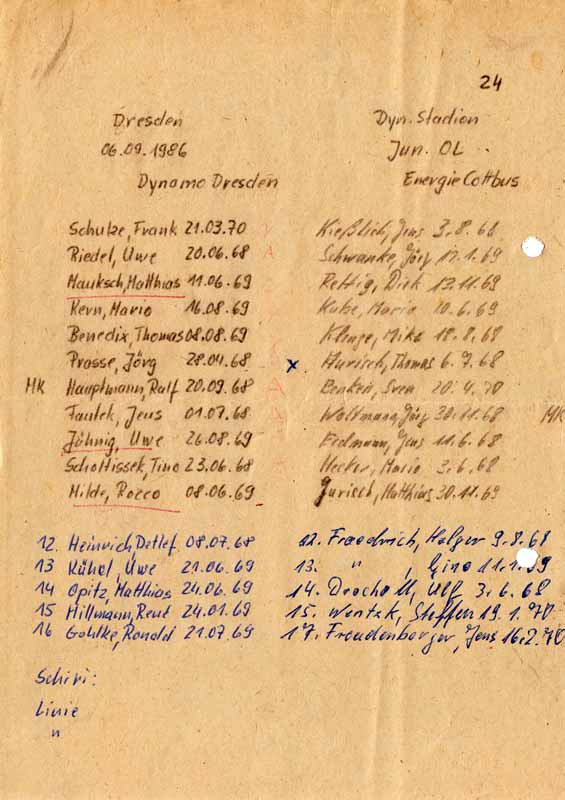 24
Dresden Dyn. Stadion
06.09.1986 Jun. OL
Dynamo Dresden Energie Cottbus
Schulze, Frank 21.03.70 Kießlich, Jens 3.8.68
Riedel, Uwe 20.06.68 Schwanke, Jörg 1.69
Mauksch, Matthias 11.06.69 Rettig, Dirk 11.69
Kern, Mario 16.08.69 Kube, Mario 10.6.69
Benedix, Thomas 08.08.69 Klinge, Mike 18.8.68
Prasse, Jörg 28.04.68 x Hurisch, Thomas 6.7.68
MK Hauptmann, Ralf 20.09.68 Benken, Sven 20.4.70
Fautek, Jens 01.07.68 Woltmann, Jörg 30.11.68 MK
Jähnig, Uwe 26.08.69 Erdmann, Jens 11.6.68
Schottissek, Tino 23.06.68 Hecker, Mario 3.6.68
Milde, Rocco 08.06.69 Jurisch, Matthias 30.11.69
12. Heinrich, Detlef 08.07.68 12. Friedrich, Holger 9.8.68
13 Kühel, Uwe 21.06.69 13. " , Gino 11.1.69
14 Opitz, Matthias 24.06.69 14. Ulf 3.6.68
15 Hillmann, René 24.01.69 15. Wentzk, Steffen 19.1.70
16 Gohlke, Ronald 21.07.69 17. Freudenberger, Jens 16.2.70
Schiri:
Linie
"